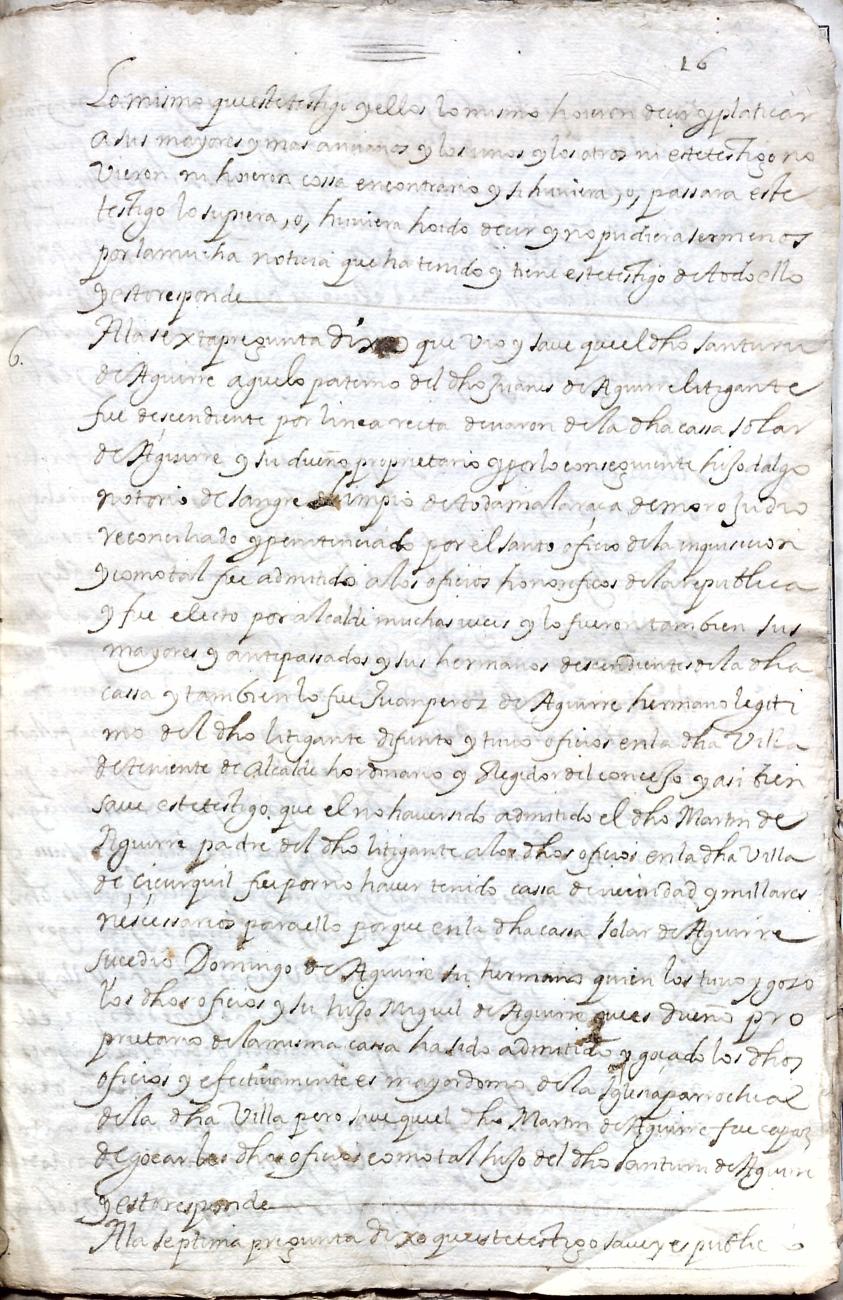 16
Lo mismo que este testigo y ellos lo mismo hoieron decir y platicar
a sus mayores y mas ancianos y los unos y los otros ni este testigo no
vieron ni hoieron cossa en contrario y si huviera, o, passara este
testigo lo supiera, o, huviera hoido decir y no pudiera ser menos
por la mucha noticia que ha tenido y tiene este testigo de todo ello
y esto responde
6. A la sexta pregunta dixo que vio y save que el dho Santuru
de Aguirre aguelo paterno del dho Juanes de Aguirre litigante
fue descendiente por linea recta de varon de la dha cassa solar
de Aguirre y su dueño proprietario y por lo conseguiente hijodalgo
notorio de sangre limpio de toda mala raça de moro judio
reconciliado y penitenciado por el santo oficio de la inquisicion
y como tal fue admitido a los oficios honorificos de la republica
y fue electo por alcalde muchas veces y lo fueron tambien sus
mayores y antepassados y sus hermanos descendientes de la dha
cassa y tambien lo fue Juan perez de Aguirre hermano legiti
mo del dho litigante difunto y tuvo oficios en la dha Villa
de teniente de Alcalde hordinario y Regidor del concejo y asi bien
save este testigo que el no haver sido admitido el dho Martin de
Aguirre padre del dho litigante a los dhos oficios en la dha Villa
de cicurquil fue por no haver tenido cassa de vecindad y millares
nescessarios para ello porque en la dha cassa solar de Aguirre
sucedio Domingo de Aguirre su hermano quien los tuvo y gozo
los dhos oficios y su hijo Miguel de Aguirre que es dueño pro
prietario de la misma cassa ha sido admitido y goçado los dhos
oficios y efectivamente es mayordomo de la Iglesia parrochial
de la dha Villa pero save que el dho Martin de Aguirre fue capaz
de goçar los dhos oficios como tal hijo del dho Santuru de Aguirre
y esto responde
A la septima pregunta dixo que este testigo save y es publico